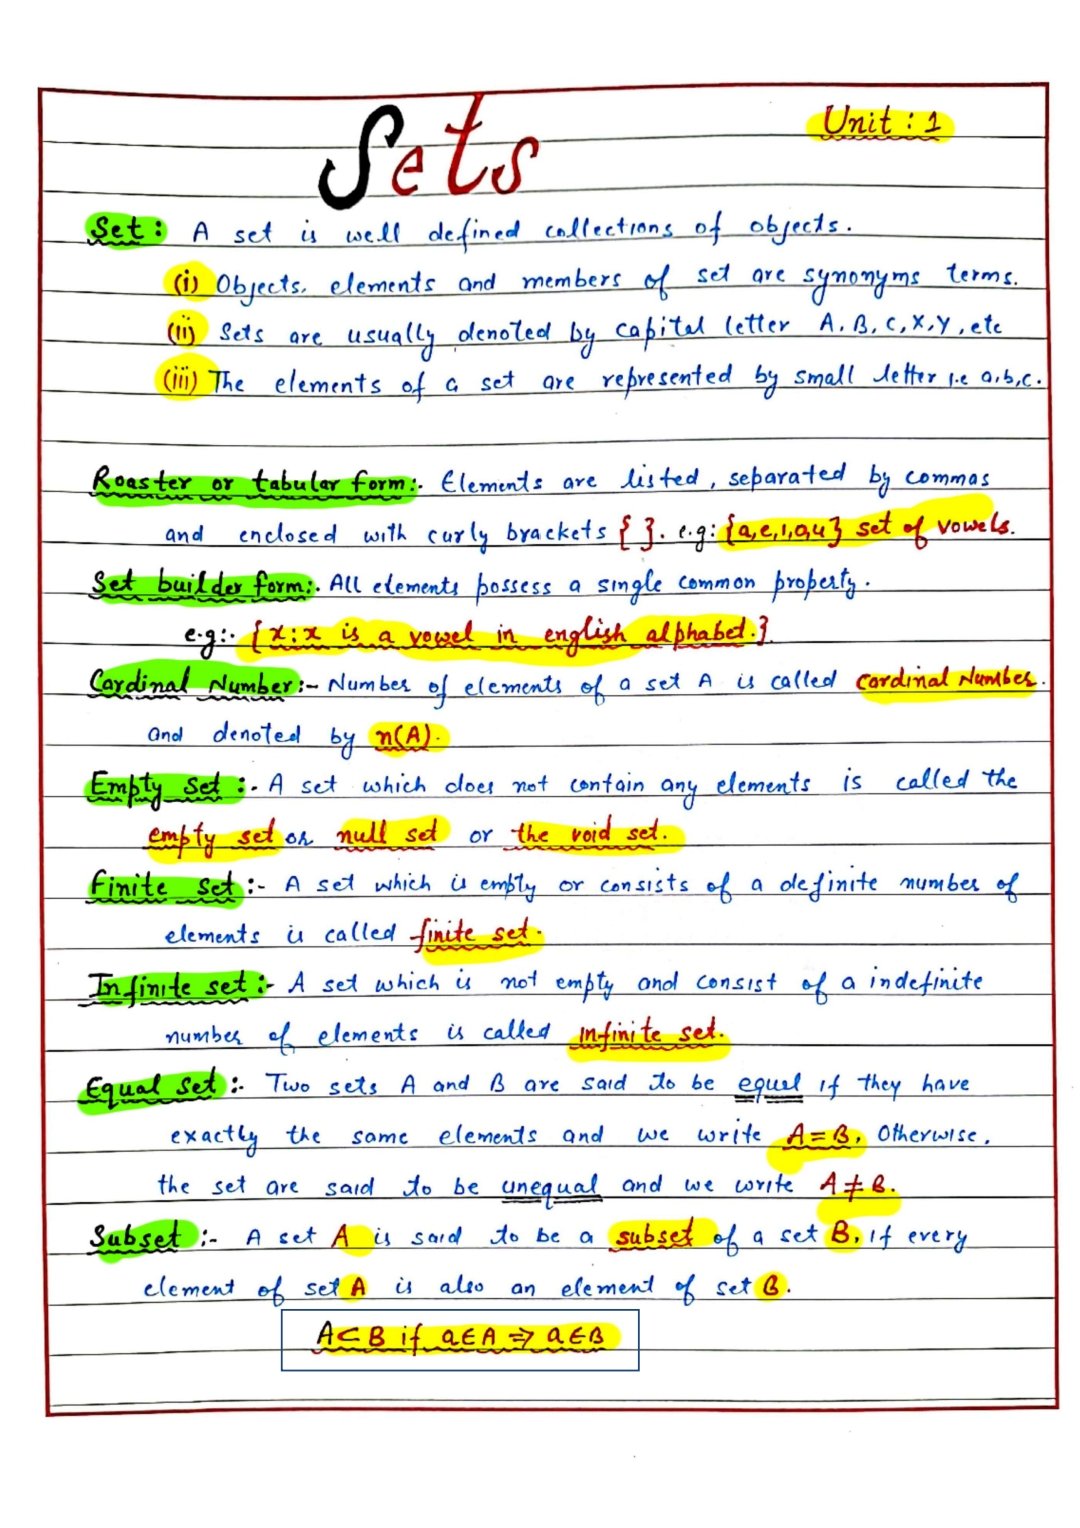 Sets
Unit : 1
Set : A set is well defined collections of objects.
(i) Objects, elements and members of set are synonyms terms.
(ii) Sets are usually denoted by capital letter A, B, C, X, Y, etc
(iii) The elements of a set are represented by small letter i.e a,b,c.
Roaster or tabular form:. Elements are listed, separated by commas
and enclosed with curly brackets { }. e.g: {a,e,i,o,u} set of vowels.
Set builder form:. All elements possess a single common property.
e.g:. {x:x is a vowel in english alphabet.}
Cardinal Number:- Number of elements of a set A is called Cardinal Number.
and denoted by n(A).
Empty set :. A set which does not contain any elements is called the
empty set or null set or the void set.
Finite set :- A set which is empty or consists of a definite number of
elements is called finite set.
Infinite set :- A set which is not empty and consist of a indefinite
number of elements is called infinite set.
Equal set :. Two sets A and B are said to be equal if they have
exactly the same elements and we write A=B, Otherwise,
the set are said to be unequal and we write A≠B.
Subset :- A set A is said to be a subset of a set B, if every
element of set A is also an element of set B.
A⊂B if a∈A ⇒ a∈B